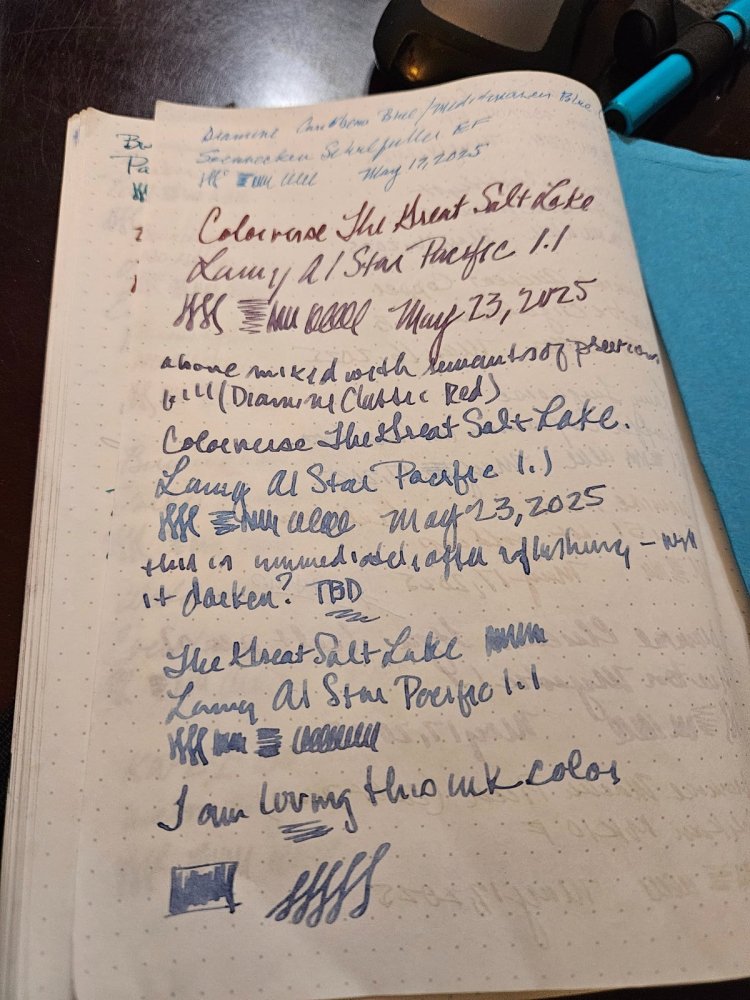 Bu
Pa
Diamine Caribbean Blue/Mediterranean Blue
Soennecken Schulfüller EF
May 19, 2025
Colorverse The Great Salt Lake
Lamy Al Star Pacific 1.1
May 23, 2025
above mixed with remnants of previous
fill (Diamine Classic Red)
Colorverse The Great Salt Lake.
Lamy Al Star Pacific 1.1
May 23, 2025
this is immediately after refilling – will
it darken? TBD
The Great Salt Lake
Lamy Al Star Pacific 1.1
I am loving this ink color